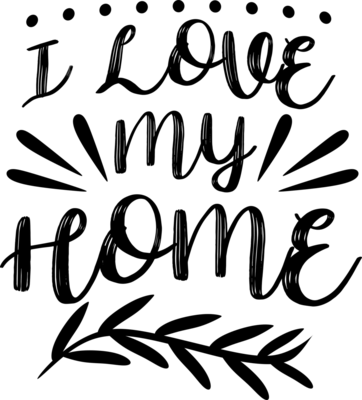 I LOVE
my
HOME